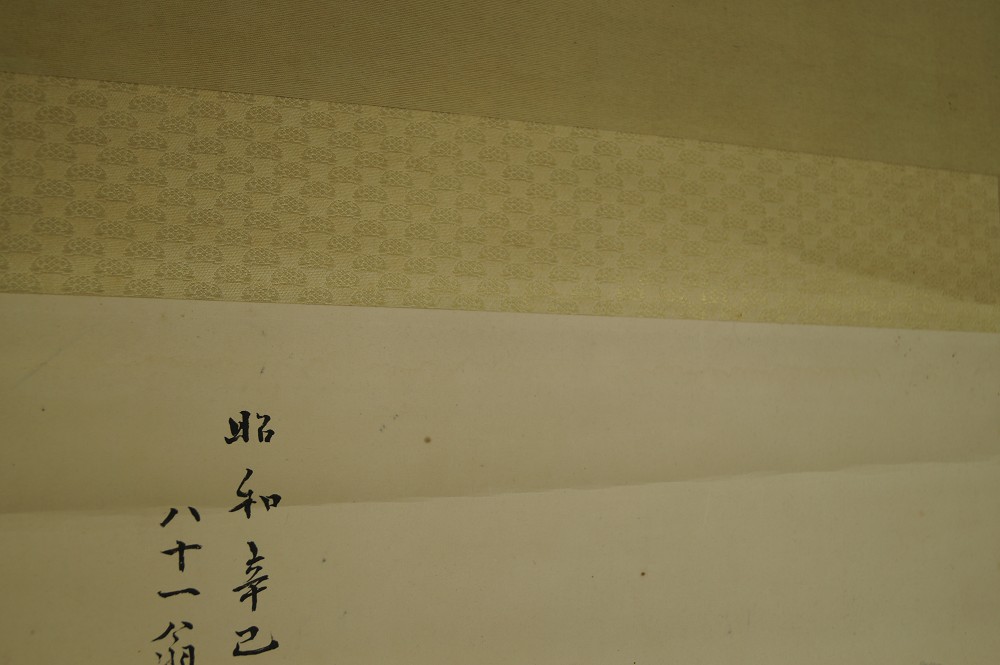 昭和辛巳
八十一翁